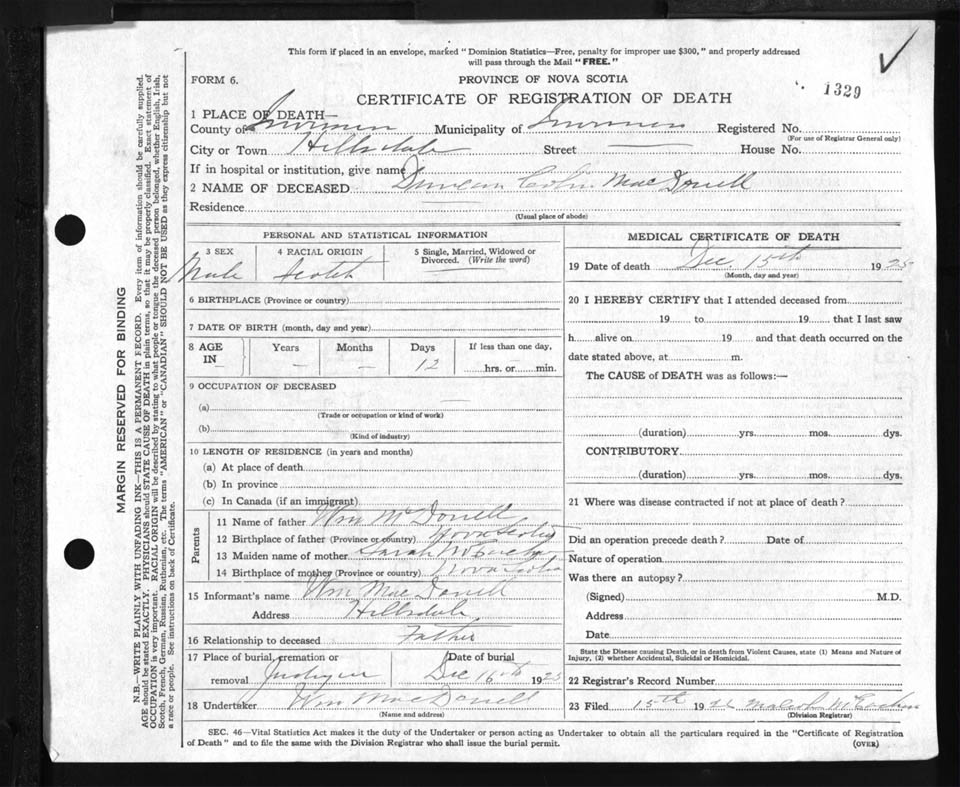 This form if placed in an envelope, marked "Dominion Statistics—Free, penalty for improper use $300," and properly addressed
will pass through the Mail "FREE."
FORM 6. PROVINCE OF NOVA SCOTIA
1329
CERTIFICATE OF REGISTRATION OF DEATH
1 PLACE OF DEATH—
County of Inverness Municipality of Inverness Registered No.
(For use of Registrar General only)
City or Town Hillsdale Street — House No.
If in hospital or institution, give name
2 NAME OF DECEASED Duncan Colin MacDonell
Residence —
(Usual place of abode)
PERSONAL AND STATISTICAL INFORMATION
3 SEX 4 RACIAL ORIGIN 5 Single, Married, Widowed or
Divorced. (Write the word)
Male Scotch —
6 BIRTHPLACE (Province or country)
7 DATE OF BIRTH (month, day and year)
8 AGE Years Months Days If less than one day,
IN — — — 12 hrs. or min.
9 OCCUPATION OF DECEASED —
(a)
(Trade or occupation or kind of work)
(b)
(Kind of industry)
10 LENGTH OF RESIDENCE (in years and months)
(a) At place of death
(b) In province
(c) In Canada (if an immigrant)
Parents
11 Name of father Wm McDonell
12 Birthplace of father (Province or country) Nova Scotia
13 Maiden name of mother Sarah
14 Birthplace of mother (Province or country) Nova Scotia
15 Informant's name Wm MacDonell
Address Hillsdale
16 Relationship to deceased Father
17 Place of burial, cremation or Date of burial
removal Judique Dec 16th 1925
18 Undertaker Wm MacDonell
(Name and address)
MEDICAL CERTIFICATE OF DEATH
19 Date of death Dec. 15th 1925
(Month, day and year)
20 I HEREBY CERTIFY that I attended deceased from
19 to 19 that I last saw
h alive on 19 and that death occurred on the
date stated above, at m.
The CAUSE of DEATH was as follows:—
(duration) yrs. mos. dys.
CONTRIBUTORY
(duration) yrs. mos. dys.
21 Where was disease contracted if not at place of death?
Did an operation precede death? Date of
Nature of operation
Was there an autopsy?
(Signed) M.D.
Address
Date
State the Disease causing Death, or in death from Violent Causes, state (1) Means and Nature of
Injury, (2) whether Accidental, Suicidal or Homicidal.
22 Registrar's Record Number
23 Filed 15th 19 Malcolm
(Division Registrar)
SEC. 46—Vital Statistics Act makes it the duty of the Undertaker or person acting as Undertaker to obtain all the particulars required in the "Certificate of Registration
of Death" and to file the same with the Division Registrar who shall issue the burial permit. (OVER)
MARGIN RESERVED FOR BINDING
N.B.—WRITE PLAINLY WITH UNFADING INK—THIS IS A PERMANENT RECORD. Every item of information should be carefully supplied.
AGE should be stated EXACTLY. PHYSICIANS should STATE CAUSE OF DEATH in plain terms, so that it may be properly classified. Exact statement of
OCCUPATION is very important. RACIAL ORIGIN will be described by stating to what people or tongue the deceased person belonged, whether English, Irish,
Scotch, French, German, Russian, Ruthenian, etc. The terms "AMERICAN" or "CANADIAN" SHOULD NOT BE USED as they express citizenship but not
a race or people. See instructions on back of Certificate.